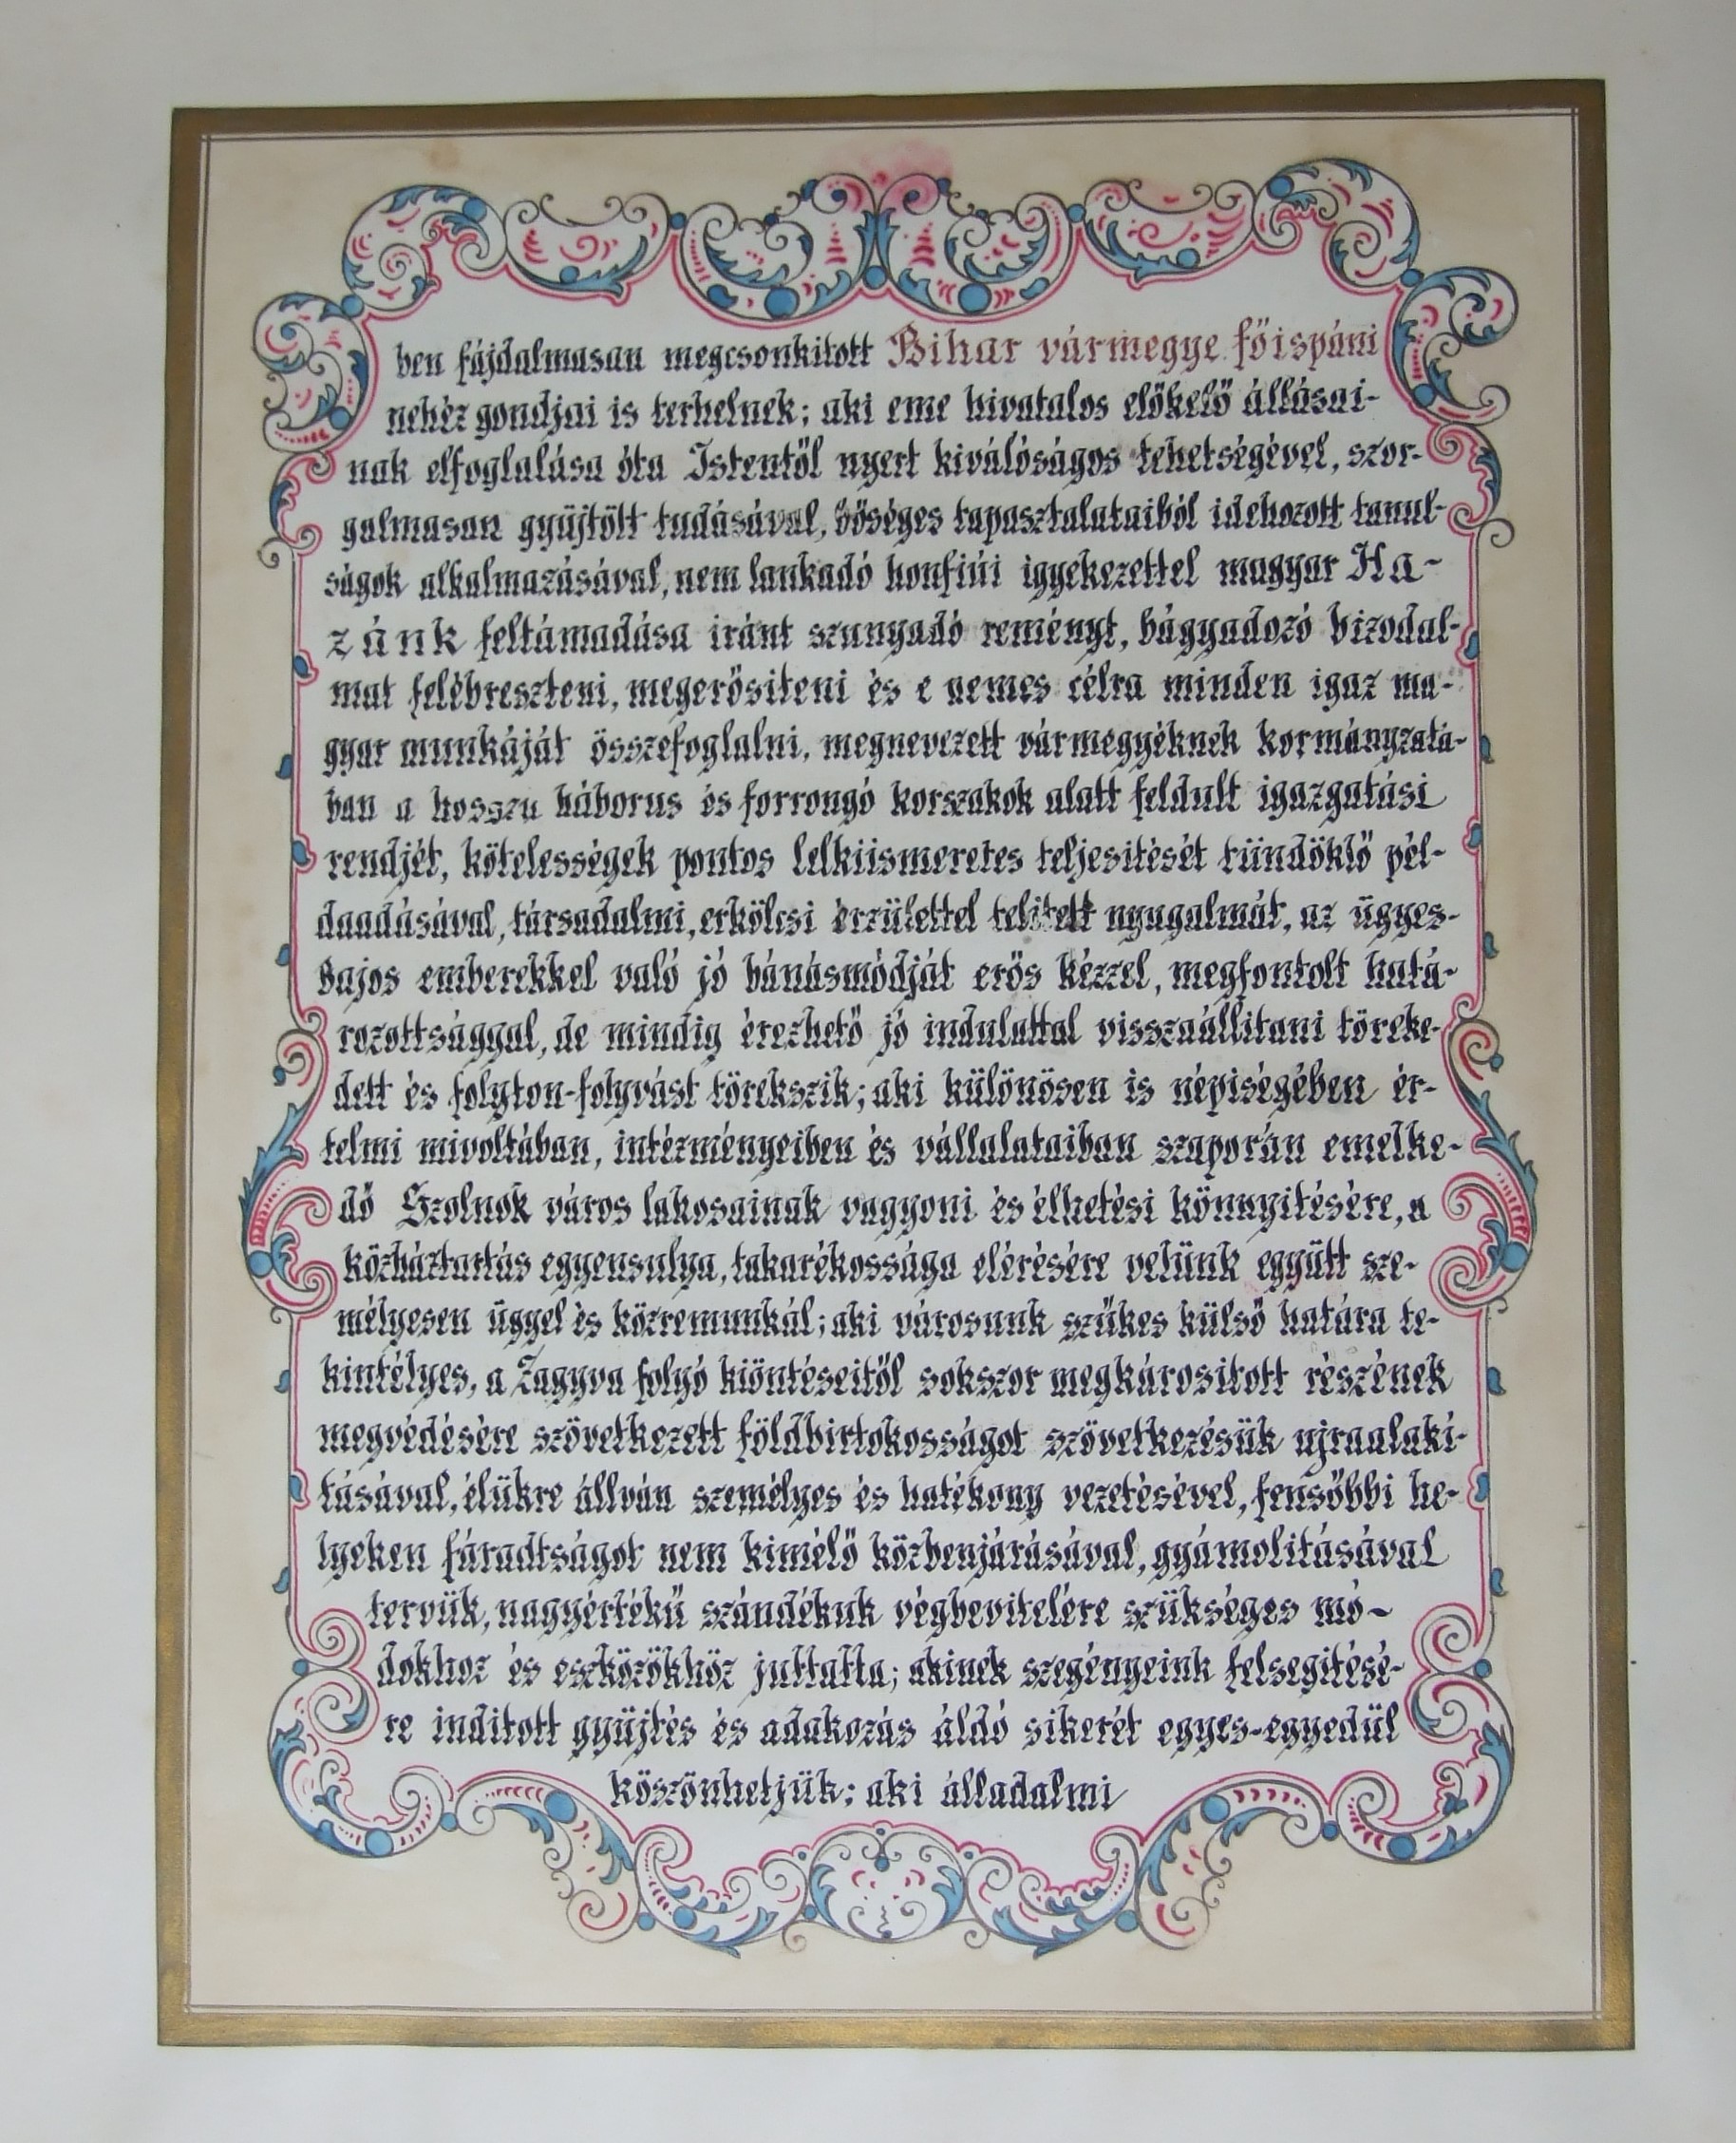 ben fájdalmasan megcsonkitott Bihar vármegye főispáni
nehéz gondjai is terhelnek; aki eme hivatalos előkelő állásai-
nak elfoglalása óta Istentől nyert kiválóságos tehetségével, szor-
galmasan gyüjtött tudásával, bőséges tapasztalataiból idehozott tanul-
ságok alkalmazásával, nem lankadó honfiúi igyekezettel magyar Ha-
zánk feltámadása iránt szunyadó reményt, bágyadozó bizodal-
mat felébreszteni, megerősiteni és e nemes célra minden igaz ma-
gyar munkáját összefoglalni, megnevezett vármegyéknek kormányzatá-
ban a hosszu háborus és forrongó korszakok alatt feldult igazgatási
rendjét, kötelességek pontos lelkiismeretes teljesitését tündöklő pél-
daadásával, társadalmi, erkölcsi érzülettel telitett nyugalmát, az ügyes-
bajos emberekkel való jó bánásmódját erős kézzel, megfontolt hatá-
rozottsággal, de mindig érezhető jó indulattal visszaállitani töreke-
dett és folyton-folyvást törekszik; aki különösen is népiségében ér-
telmi mivoltában, intézményeiben és vállalataiban szaporán emelke-
dő Szolnok város lakosainak vagyoni és élhetési könnyitésére, a
közháztartás egyensulya, takarékossága elérésére velünk együtt sze-
mélyesen ügyel és közremunkál; aki városunk szűkes külső határa te-
kintélyes, a Zagyva folyó kiöntéseitől sokszor megkárositott részének
megvédésére szövetkezett földbirtokosságot szövetkezésük ujraalaki-
tásával, élükre állván személyes és hatékony vezetésével, fensőbbi he-
lyeken fáradtságot nem kimélő közbenjárásával, gyámolitásával
tervük, nagyértékű szándékuk végbevitelére szükséges mó-
dokhoz és eszközökhöz juttatta; akinek szegényeink felsegitésé-
re inditott gyüjtés és adakozás áldó sikerét egyes-egyedül
köszönhetjük; aki álladalmi